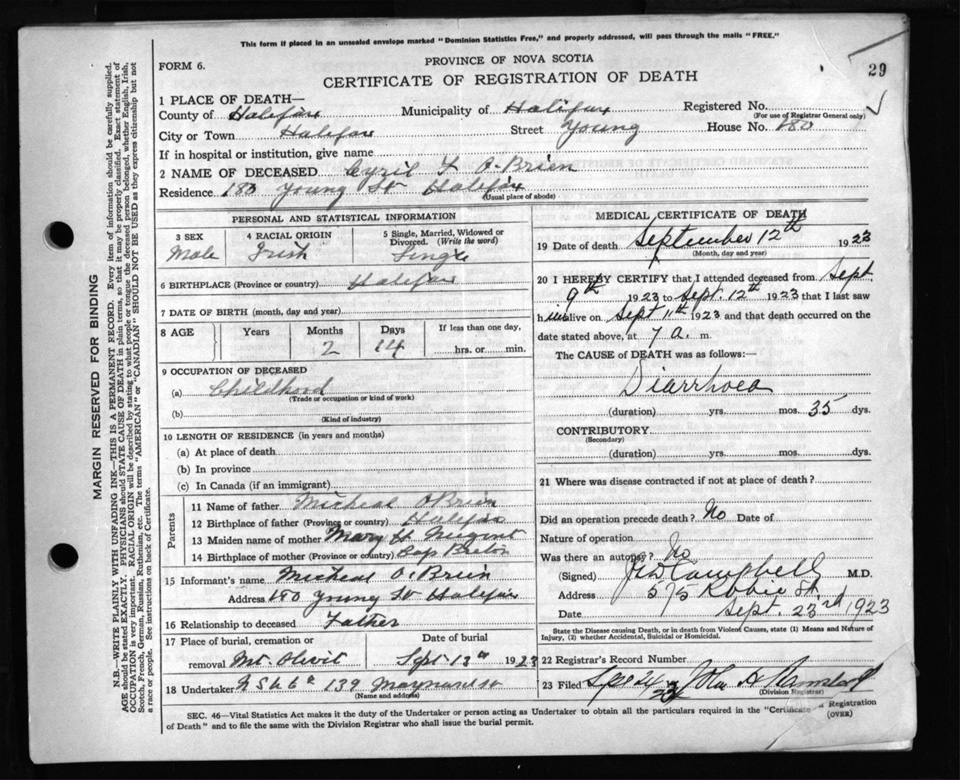 This form if placed in an unsealed envelope marked "Dominion Statistics Free," and properly addressed, will pass through the mails "FREE."
29
FORM 6.
PROVINCE OF NOVA SCOTIA
CERTIFICATE OF REGISTRATION OF DEATH
1 PLACE OF DEATH—
County of Halifax Municipality of Halifax Registered No.
(For use of Registrar General only)
City or Town Halifax Street Young House No. 180
If in hospital or institution, give name
2 NAME OF DECEASED Cyril F O'Brien
Residence 180 Young St Halifax
(Usual place of abode)
PERSONAL AND STATISTICAL INFORMATION
3 SEX 4 RACIAL ORIGIN 5 Single, Married, Widowed or Divorced. (Write the word)
Male Irish Single
6 BIRTHPLACE (Province or country) Halifax
7 DATE OF BIRTH (month, day and year)
8 AGE Years Months Days If less than one day,
2 14 hrs. or min.
9 OCCUPATION OF DECEASED
(a) Childhood
(Trade or occupation or kind of work)
(b)
(Kind of industry)
10 LENGTH OF RESIDENCE (in years and months)
(a) At place of death
(b) In province
(c) In Canada (if an immigrant)
Parents
11 Name of father Micheal O'Brien
12 Birthplace of father (Province or country) Halifax
13 Maiden name of mother Mary Nugent
14 Birthplace of mother (Province or country) Cap Breton
15 Informant's name Micheal O'Brien
Address 180 Young St Halifax
16 Relationship to deceased Father
17 Place of burial, cremation or Date of burial
removal Mt. Olivit Sept 13th 1923
18 Undertaker 139 Maynard St
(Name and address)
MEDICAL CERTIFICATE OF DEATH
19 Date of death September 12th 1923
(Month, day and year)
20 I HEREBY CERTIFY that I attended deceased from Sept
9th 1923 to Sept. 12th 1923 that I last saw
h im alive on Sept 11th 1923 and that death occurred on the
date stated above, at 7 a. m.
The CAUSE OF DEATH was as follows:—
Diarrhoea
(duration) yrs. mos. 35 dys.
CONTRIBUTORY
(Secondary)
(duration) yrs. mos. dys.
21 Where was disease contracted if not at place of death?
Did an operation precede death? No Date of
Nature of operation
Was there an autopsy? No
(Signed) Campbell M.D.
Address 575 Robie St.
Date Sept. 23rd 1923
State the Disease causing Death, or in death from Violent Causes, state (1) Means and Nature of
Injury, (2) whether Accidental, Suicidal or Homicidal.
22 Registrar's Record Number
23 Filed John H
(Division Registrar)
SEC. 46—Vital Statistics Act makes it the duty of the Undertaker or person acting as Undertaker to obtain all the particulars required in the "Certificate of Registration
of Death" and to file the same with the Division Registrar who shall issue the burial permit.
(OVER)
MARGIN RESERVED FOR BINDING
N.B.—WRITE PLAINLY WITH UNFADING INK—THIS IS A PERMANENT RECORD. Every item of information should be carefully supplied.
AGE should be stated EXACTLY. PHYSICIANS should STATE CAUSE OF DEATH in plain terms, so that it may be properly classified. Exact statement of
OCCUPATION is very important. RACIAL ORIGIN will be described by stating to what people or tongue the deceased person belonged, whether English, Irish,
Scotch, French, German, Russian, Ruthenian, etc. The terms "AMERICAN" or "CANADIAN" SHOULD NOT BE USED as they express citizenship but not
a race or people. See instructions on back of Certificate.